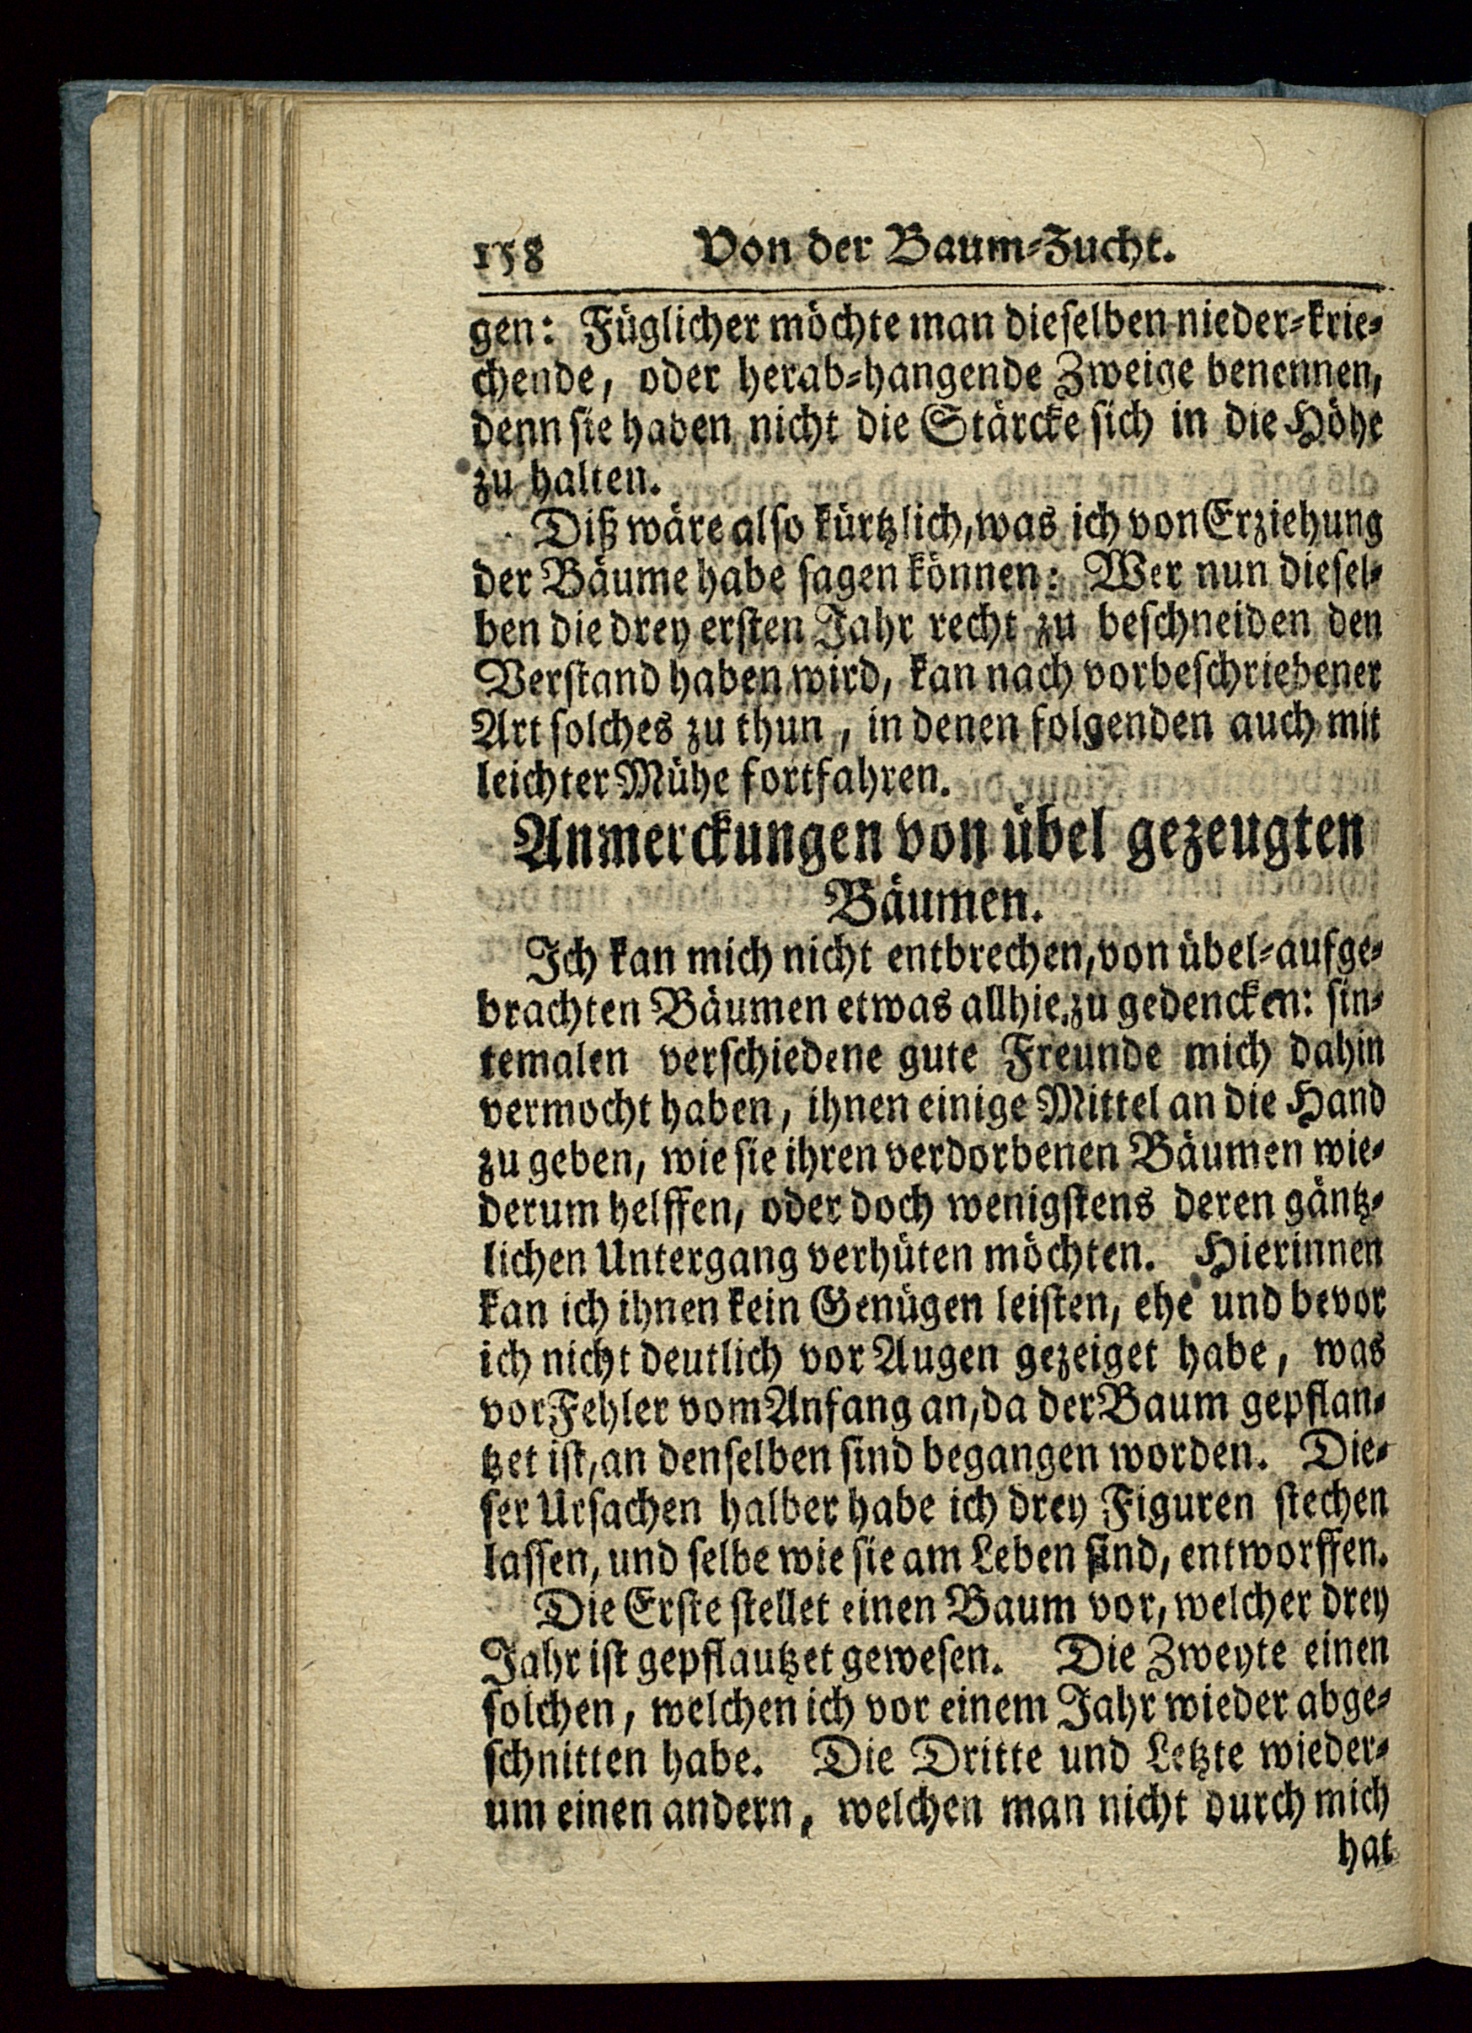 158 Von der Baum-Zucht.
gen: Füglicher möchte man dieselben nieder-krie-
chende, oder herab-hangende Zweige benennen,
denn sie haben nicht die Stärcke sich in die Höhe
zu halten.
Diß wäre also kürtzlich, was ich von Erziehung
der Bäume habe sagen können: Wer nun diesel-
ben die drey ersten Jahr recht zu beschneiden den
Verstand haben wird, kan nach vorbeschriebener
Art solches zu thun, in denen folgenden auch mit
leichter Mühe fortfahren.
Anmerckungen von übel gezeugten
Bäumen.
Ich kan mich nicht entbrechen, von übel-aufge-
brachten Bäumen etwas allhie zu gedencken: sin-
temalen verschiedene gute Freunde mich dahin
vermocht haben, ihnen einige Mittel an die Hand
zu geben, wie sie ihren verdorbenen Bäumen wie-
derum helffen, oder doch wenigstens deren gäntz-
lichen Untergang verhüten möchten. Hierinnen
kan ich ihnen kein Genügen leisten, ehe und bevor
ich nicht deutlich vor Augen gezeiget habe, was
vor Fehler vom Anfang an, da der Baum gepflan-
tzet ist, an denselben sind begangen worden. Die-
ser Ursachen halber habe ich drey Figuren stechen
lassen, und selbe wie sie am Leben sind, entworffen.
Die Erste stellet einen Baum vor, welcher drey
Jahr ist gepflautzet gewesen. Die Zweyte einen
solchen, welchen ich vor einem Jahr wieder abge-
schnitten habe. Die Dritte und Letzte wieder-
um einen andern, welchen man nicht durch mich
hat